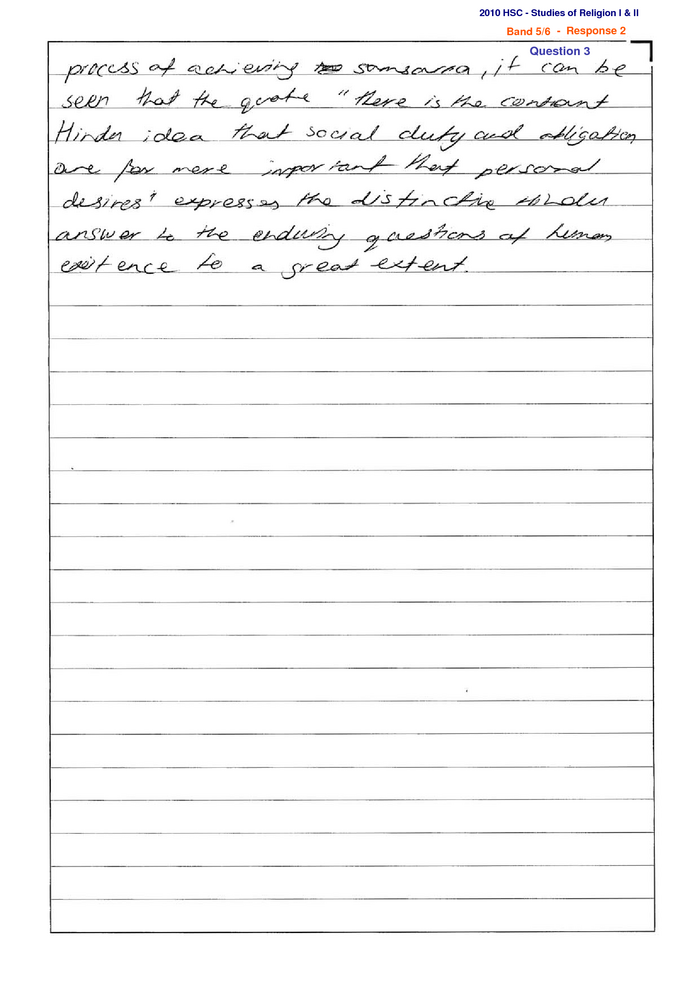 2010 HSC - Studies of Religion I & II
Band 5/6 - Response 2
Question 3
process of achieving samsarra, it can be
seen that the quote "there is the constant
Hindu idea that social duty and obligation
are far more important that personal
desires" expresses the distinctive Hindu
answer to the enduring questions of human
existence to a great extent.